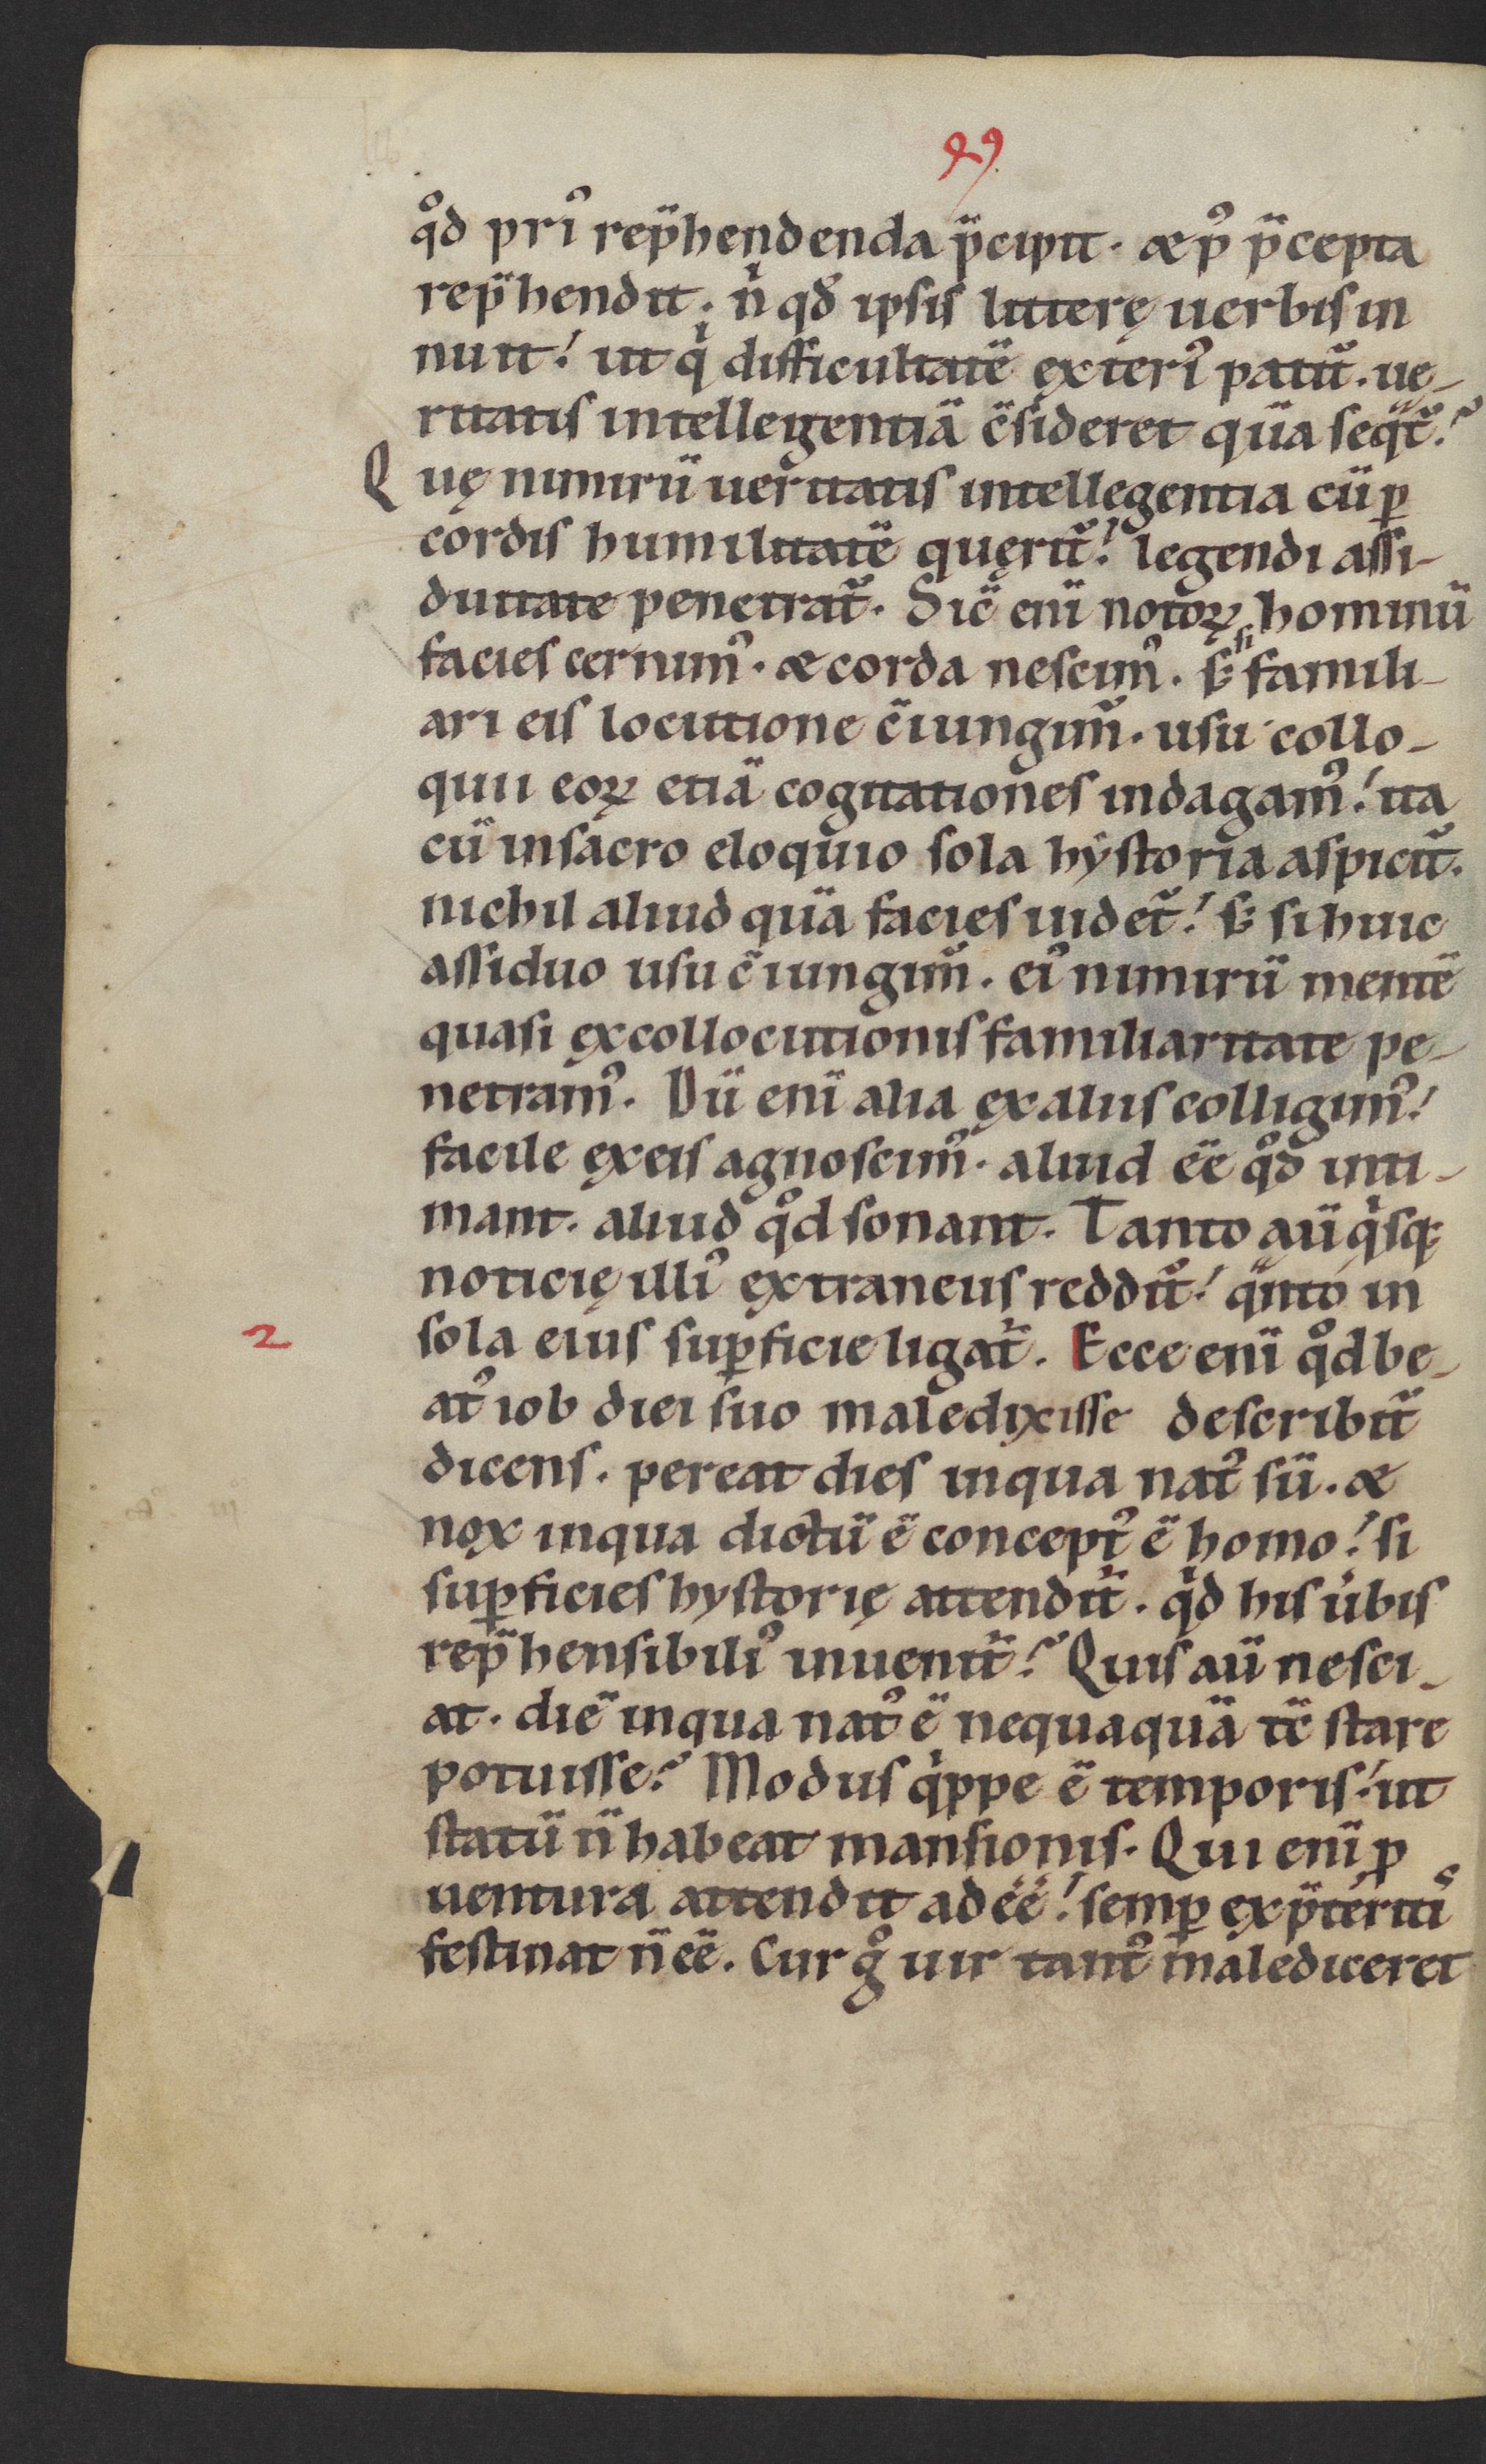 99.
qͦd pri᾽ rep̈hendenda p̈cipit · & p᾽ p̈cepta
rep̈hendit · n̈ qͥd ipsis litterę uerbis in
nuit! ut qͥ difficultatë exteri᾽ patit᷑ · ue-
ritatis intellegentiä c̈sideret quä seqͥt᷑?
Quę nimirü ueritatis intellegentia cü ꝑ
cordis humilitatë querit᷑! legendi assi-
duitate penetrat᷑ · Sic̈ enï notoꝝ hominü
facies cernim᾽ · & corda nescim᾽ · s; si famili-
ari eis locutione c̈iungim᷑ · usu collo-
quii eoꝝ etiä cogitationes indagam᾽! ita
cü in sacro eloquio sola hystoria aspicit᷑ ·
nichil aliud quä facies uidet᷑! s; si huic
assiduo usu c̈iungim᷑ · ei᾽ nimirü mentë
quasi ex collocutionis familiaritate pe-
netram᾽ · Dü enï alia ex aliis colligim᾽!
facile ex eis agnoscim᾽ · aliud ëe qͦd inti-
mant · aliud qͦd sonant · Tanto aü qͥsq;
noticię illi᾽ extraneus reddit᷑! qänto in
2 sola eius suꝑficie ligat᷑ · Ecce enï qͦd be-
at᾽ iob diei suo maledixisse describit᷑
dicens · pereat dies in qua nat᾽ sü · &
nox in qua dictü ë concept᾽ ë homo! si
suꝑficies hystorię attendit᷑ · qͥd his u᷑bis
rep̈hensibili᾽ inuenit᷑? Quis aü nesci-
at · dië in qua nat᾽ ë nequaquä tc̈ stare
potuisse? Modus qͥppe ë temporis! ut
statü n̈ habeat mansionis · Qui enï ꝑ
uentura attendit ad ëe! semꝑ ex p̈teritis
festinat n̈ ëe · Cur gͦ uir tant᾽ malediceret